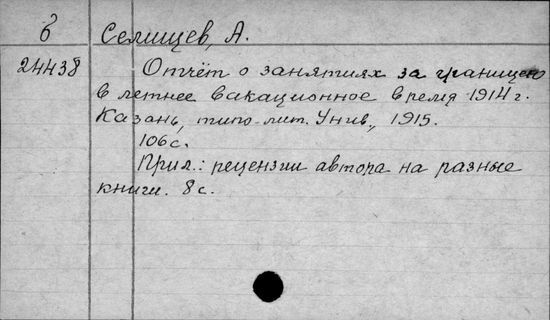 б Селищев, А.
24438 Отчёт о занятиях за границею
в летнее вакационное время 1914 г.
Казань, типо-лит. Унив., 1915.
106 с.
Прил.: рецензии автора на разные
книги. 8 с.